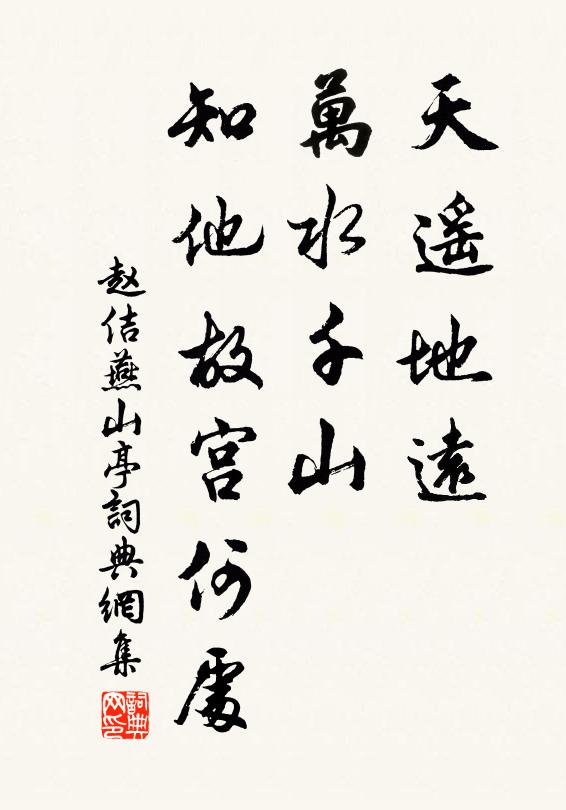 天遥地遠
萬水千山
知他故宫何處
赵佶燕山亭詞典網集
詞典
网印